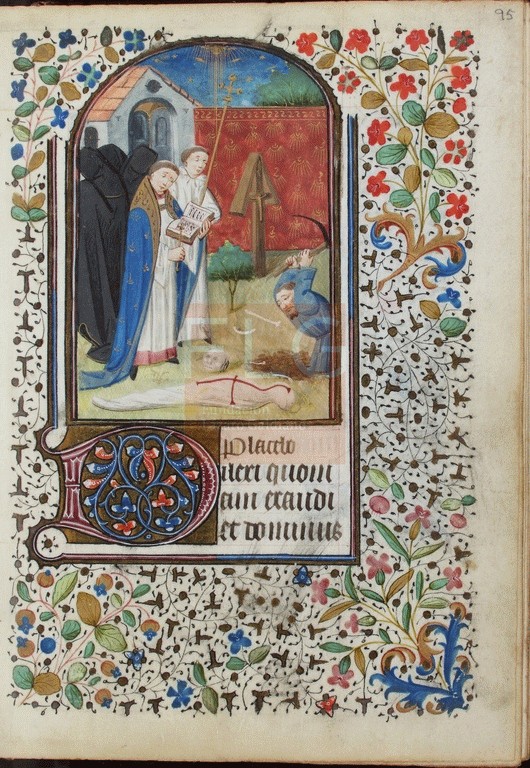 95
Placebo
Dilexi quoni
am exaudi
et dominus
Fundación